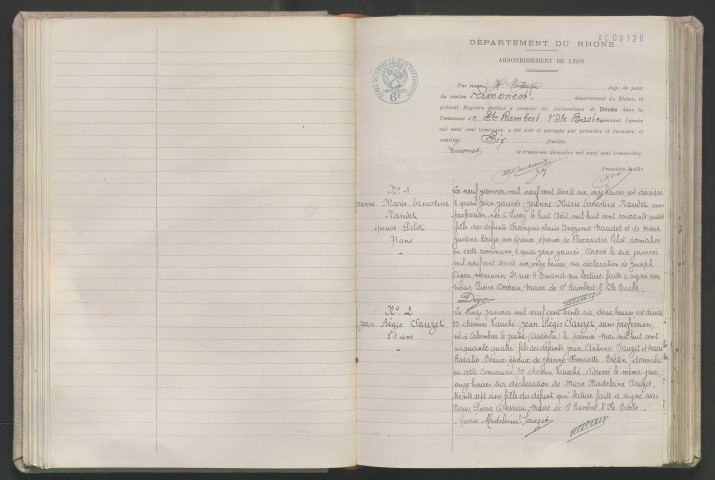 AC00126
DÉPARTEMENT DU RHÔNE
ARRONDISSEMENT DE LYON
Par nous, juge de paix
du canton Limonest, département du Rhône, le
présent Registre destiné à recevoir les déclarations de Décès dans la
Commune de St Rambert l'Ile Barbe pendant l'année
mil neuf cent trente six, a été coté et paraphé par première et dernière, et
contient Six feuilles.
Limonest, le trente-un décembre mil neuf cent trente-cinq.
Première feuille
6F
No 1
Jeanne Marie Ernestine
Naudet
épouse Pilot
71 ans
Le neuf janvier mil neuf cent trente six onze heures, est décédée
6 quai Jean Jaurès: Jeanne Marie Ernestine Naudet sans
profession née à le huit Août mil huit cent soixante quatre
fille des défunts François Louis Naudet et de Marie
Justine épouse de Alexandre Pilot domiciliée
en cette commune 6 quai Jean Jaurès. Dressé le dix janvier
mil neuf cent trente six onze heures sur déclaration de Joseph
menuisier 21 rue qui lecture faite a signé avec
Nous, Pierre Dereau Maire de St Rambert l'Ile Barbe.
No 2
Jean Régis Sauzet
81 ans
Le onze janvier mil neuf cent trente six deux heures est décédé
30 chemin Vauché: Jean Régis Sauzet sans profession,
né à Colombier le Jeune (Ardèche) le premier Mai mil huit cent
cinquante quatre fils des défunts Jean Antoine Sauzet et Marie
Rosalie époux de Jeanne Henriette domicilié
en cette commune 30 chemin Vauché. Dressé le même jour,
onze heures sur déclaration de Marie Madeleine Sauzet,
trente sept ans, fille du défunt qui lecture faite a signé avec
Nous, Pierre Dereau Maire de St Rambert l'Ile Barbe.
Marie Madeleine Sauzet